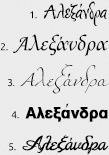 1. Αλεξάνδρα
2. Αλεξάνδρα
3. Αλεξάνδρα
4. Αλεξάνδρα
5. Αλεξάνδρα